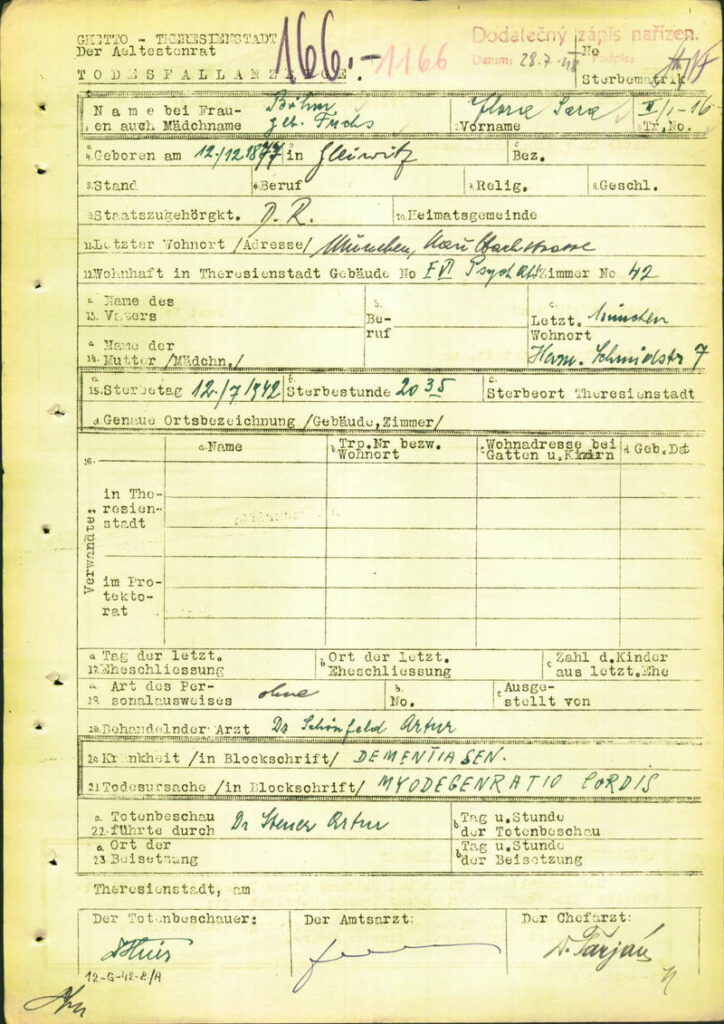 GHETTO - THERESIENSTADT
Der Aeltestenrat
TODESFALLANZEIGE.
166.-
1166
Dodatečný zápis nařízen.
Datum: 28.7.48 Podpis:
No
Sterbematrik
Name bei Frauen
en auch Mädchname
Böhm
geb. Fuchs
2. Vorname Flora Sara
II/1-16
3. Tr.No.
4. Geboren am 12./12.1877 in Gleiwitz Bez.
5. Stand 6. Beruf 7. Relig. 8. Geschl.
9. Staatszugehörgkt. D.R. 10. Heimatsgemeinde
11. Letzter Wohnort /Adresse/ München,
12. Wohnhaft in Theresienstadt Gebäude No E VI Psych Zimmer No 42
a Name des
13. Vaters
b. Be-
ruf
c. Letzt. München
Wohnort
a Name der
14. Mutter /Mädchn./
Herm. Schmidstr 7
a
15. Sterbetag 12./7/1942 b Sterbestunde 20 35 c. Sterbeort Theresienstadt
d Genaue Ortsbezeichnung /Gebäude, Zimmer/
16. Verwandte:
a. Name b Trp.Nr bezw.
Wohnort c Wohnadresse bei
Gatten u.Kindern d Geb.Dat
in The-
resien-
stadt
im Pro-
tekto-
rat
a Tag der letzt.
17. Eheschliessung
b Ort der letzt.
Eheschliessung
c Zahl d.Kinder
aus letzt.Ehe
a Art des Per-
18. sonalausweises ohne
b. No.
c Ausge-
stellt von
19. Behandelnder Arzt Dr Schönfeld Artur
20. Krankheit /in Blockschrift/ DEMENTIA SEN.
21. Todesursache /in Blockschrift/ MYODEGENRATIO CORDIS
a Totenbeschau
22. führte durch Dr Steuer Artur
b Tag u.Stunde
der Totenbeschau
a Ort der
23. Beisetzung
b Tag u.Stunde
der Beisetzung
Theresienstadt, am
Der Totenbeschauer: Der Amtsarzt: Der Chefarzt:
Dr. Tarján
12-G-42-R/A